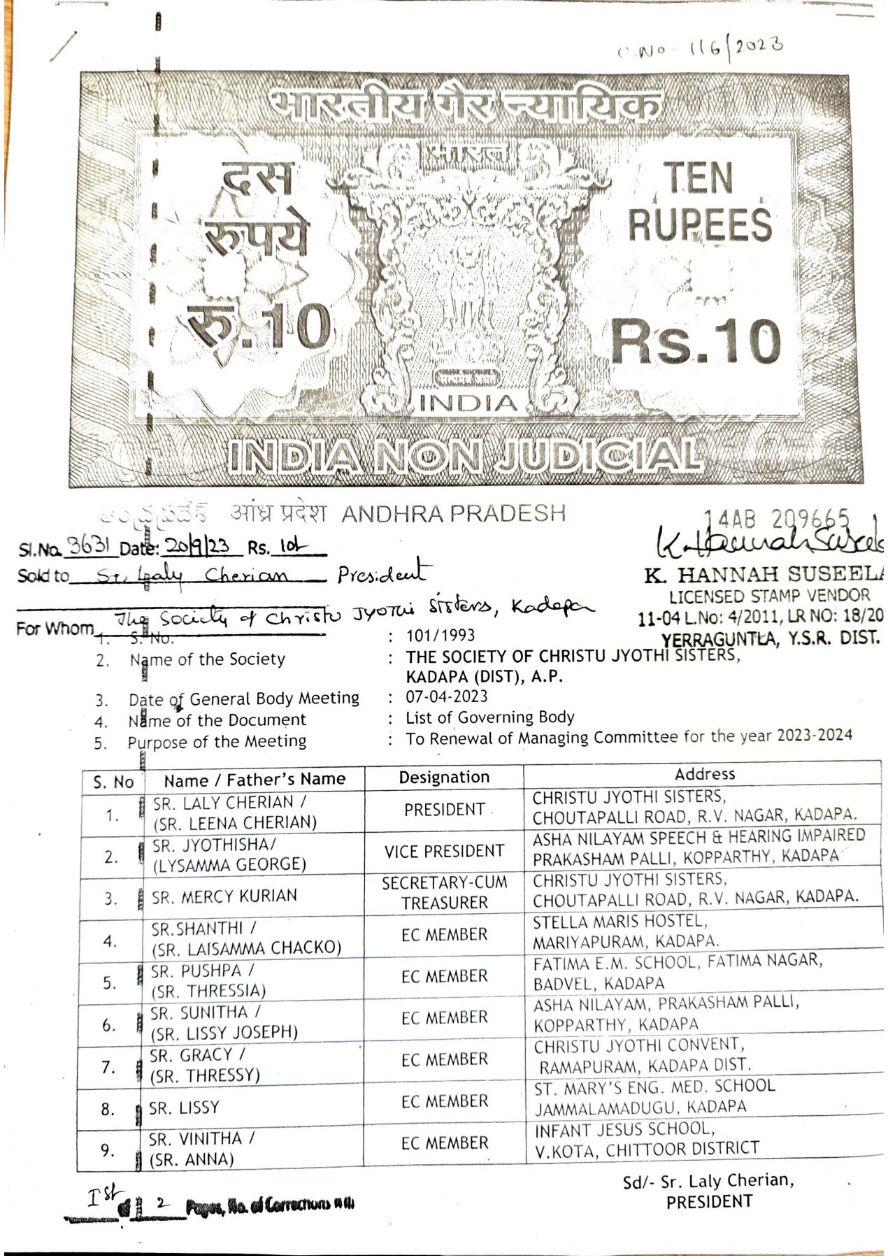 C.No. 116/2023
भारतीय गैर न्यायिक
भारत
दस
रुपये
रु.10
TEN
RUPEES
Rs.10
INDIA
INDIA NON JUDICIAL
ఆంధ్రప్రదేశ్ आंध्र प्रदेश ANDHRA PRADESH
14AB 209665
Sl.No. 3631 Date: 20/9/23 Rs. 10/-
Sold to Sr. Laly Cherian President
For Whom The Society of Christu Jyothi Sisters, Kadapa
K. Hannah Suseela
K. HANNAH SUSEELA
LICENSED STAMP VENDOR
11-04 L.No: 4/2011, LR NO: 18/20
YERRAGUNTLA, Y.S.R. DIST.
1. S. No. : 101/1993
2. Name of the Society : THE SOCIETY OF CHRISTU JYOTHI SISTERS,
KADAPA (DIST), A.P.
3. Date of General Body Meeting : 07-04-2023
4. Name of the Document : List of Governing Body
5. Purpose of the Meeting : To Renewal of Managing Committee for the year 2023-2024
S. No Name / Father's Name Designation Address
1. SR. LALY CHERIAN / PRESIDENT CHRISTU JYOTHI SISTERS,
(SR. LEENA CHERIAN) CHOUTAPALLI ROAD, R.V. NAGAR, KADAPA.
2. SR. JYOTHISHA/ VICE PRESIDENT ASHA NILAYAM SPEECH & HEARING IMPAIRED
(LYSAMMA GEORGE) PRAKASHAM PALLI, KOPPARTHY, KADAPA
3. SR. MERCY KURIAN SECRETARY-CUM CHRISTU JYOTHI SISTERS,
TREASURER CHOUTAPALLI ROAD, R.V. NAGAR, KADAPA.
4. SR.SHANTHI / EC MEMBER STELLA MARIS HOSTEL,
(SR. LAISAMMA CHACKO) MARIYAPURAM, KADAPA.
5. SR. PUSHPA / EC MEMBER FATIMA E.M. SCHOOL, FATIMA NAGAR,
(SR. THRESSIA) BADVEL, KADAPA
6. SR. SUNITHA / EC MEMBER ASHA NILAYAM, PRAKASHAM PALLI,
(SR. LISSY JOSEPH) KOPPARTHY, KADAPA
7. SR. GRACY / EC MEMBER CHRISTU JYOTHI CONVENT,
(SR. THRESSY) RAMAPURAM, KADAPA DIST.
8. SR. LISSY EC MEMBER ST. MARY'S ENG. MED. SCHOOL
JAMMALAMADUGU, KADAPA
9. SR. VINITHA / EC MEMBER INFANT JESUS SCHOOL,
(SR. ANNA) V.KOTA, CHITTOOR DISTRICT
Sd/- Sr. Laly Cherian,
PRESIDENT
Ist of 2 Pages, No. of Corrections